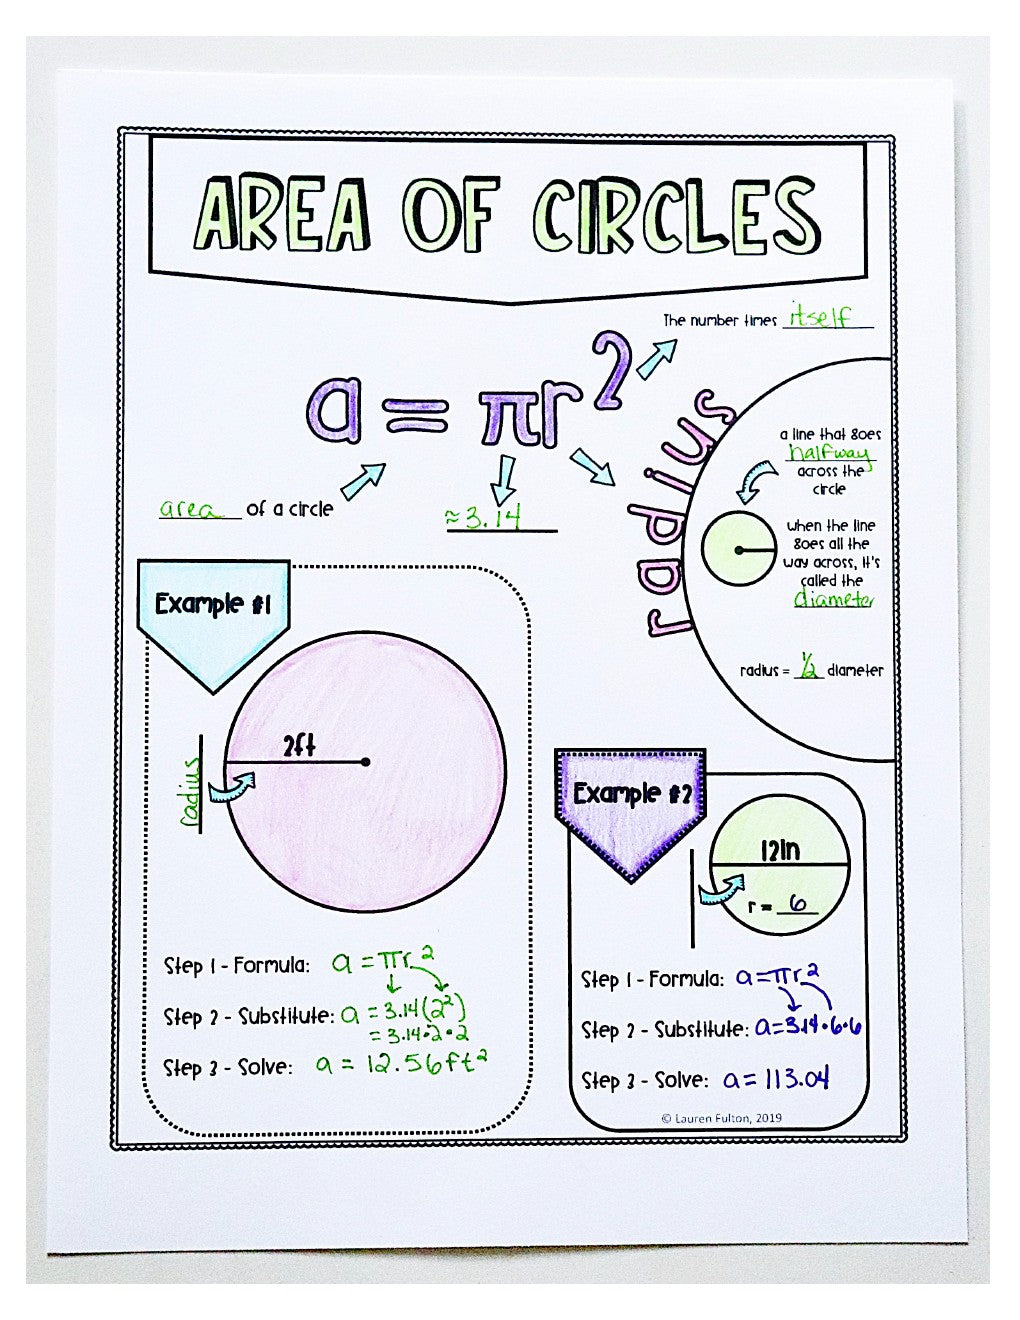 AREA OF CIRCLES
The number times itself
a = πr²
radius
area of a circle
≈ 3.14
a line that goes
halfway
across the
circle
when the line
goes all the
way across, it's
called the
diameter
radius = 1/2 diameter
Example #1
2ft
radius
Step 1 - Formula: a = πr²
Step 2 - Substitute: a = 3.14(2²)
= 3.14•2•2
Step 3 - Solve: a = 12.56ft²
Example #2
12in
r = 6
Step 1 - Formula: a=πr²
Step 2 - Substitute: a=3.14•6•6
Step 3 - Solve: a= 113.04
© Lauren Fulton, 2019